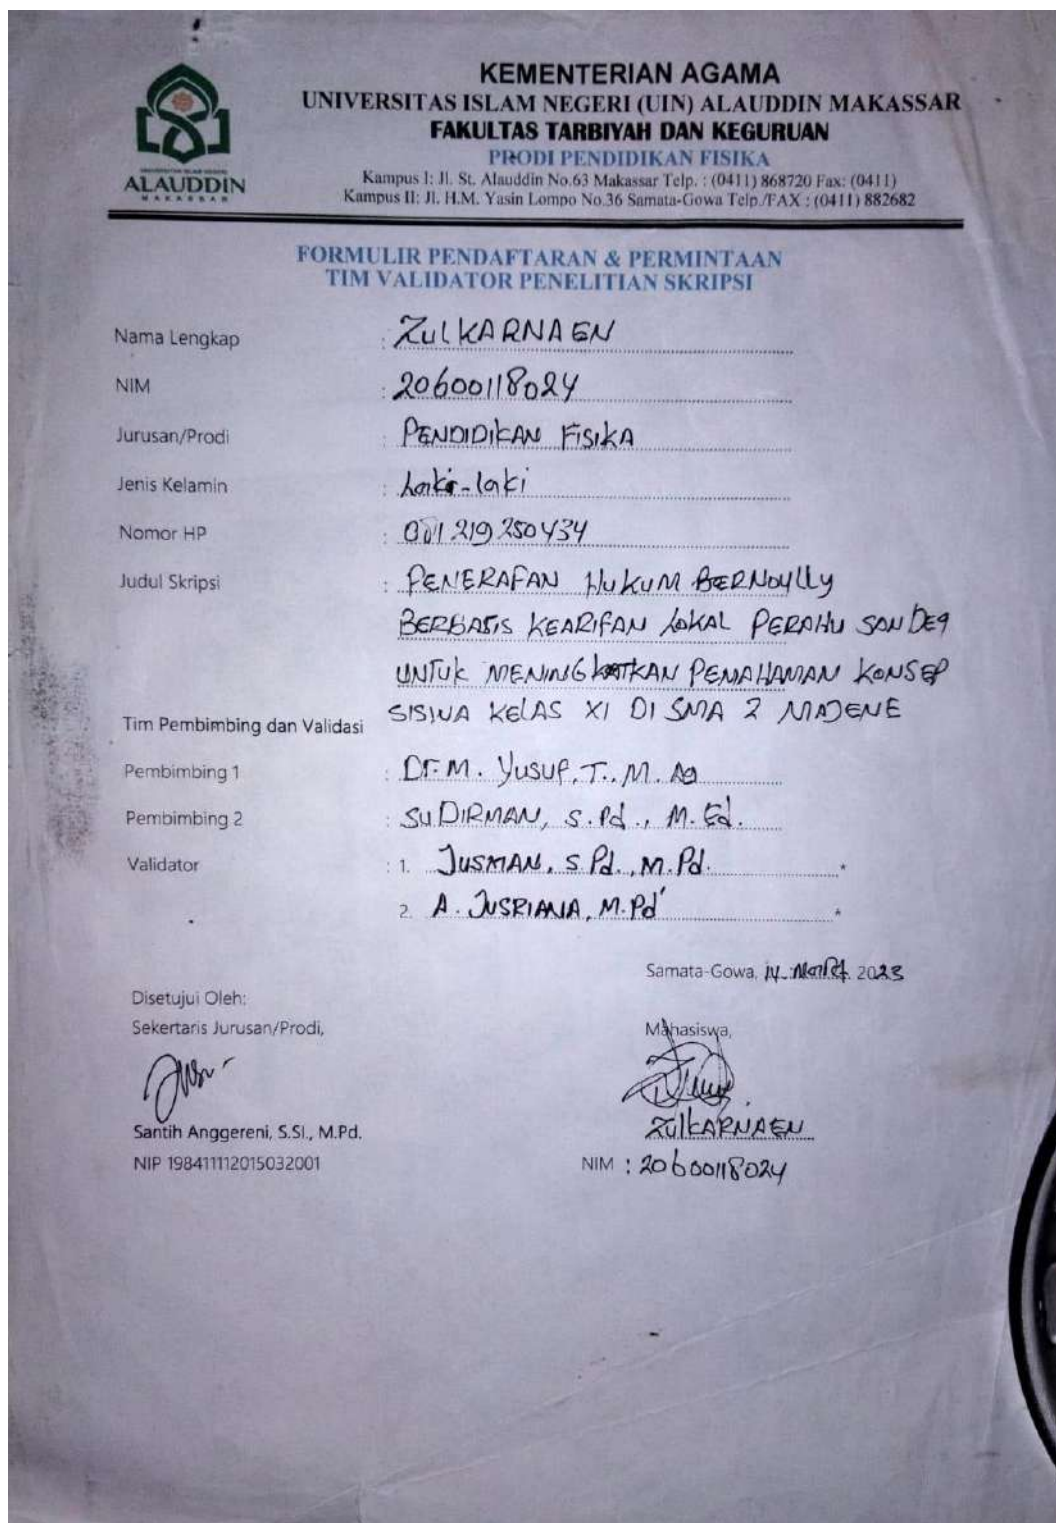 KEMENTERIAN AGAMA
UNIVERSITAS ISLAM NEGERI (UIN) ALAUDDIN MAKASSAR
FAKULTAS TARBIYAH DAN KEGURUAN
PRODI PENDIDIKAN FISIKA
Kampus I: Jl. St. Alauddin No.63 Makassar Telp. : (0411) 868720 Fax: (0411)
Kampus II: Jl. H.M. Yasin Lompo No.36 Samata-Gowa Telp./FAX : (0411) 882682
UNIVERSITAS ISLAM NEGERI
ALAUDDIN
MAKASSAR
FORMULIR PENDAFTARAN & PERMINTAAN
TIM VALIDATOR PENELITIAN SKRIPSI
Nama Lengkap : ZULKARNAEN
NIM : 20600118024
Jurusan/Prodi : PENDIDIKAN FISIKA
Jenis Kelamin : Laki-laki
Nomor HP : 081 219 250434
Judul Skripsi : PENERAFAN HUKUM BERNOULLY
BERBASIS KEARIFAN LOKAL PERAHU SANDEQ
UNTUK MENINGKATKAN PEMAHAMAN KONSEP
SISWA KELAS XI DI SMA 2 MAJENE
Tim Pembimbing dan Validasi
Pembimbing 1 : Dr. M. Yusuf, T., M. Ag
Pembimbing 2 : SUDIRMAN, S.Pd., M.Ed.
Validator : 1. JUSMAN, S.Pd., M.Pd. *
2. A. JUSRIANA, M.Pd *
Samata-Gowa, 14 Maret 2023
Disetujui Oleh:
Sekertaris Jurusan/Prodi, Mahasiswa,
Santih Anggereni, S.Si., M.Pd. ZULKARNAEN
NIP 198411112015032001 NIM : 20600118024